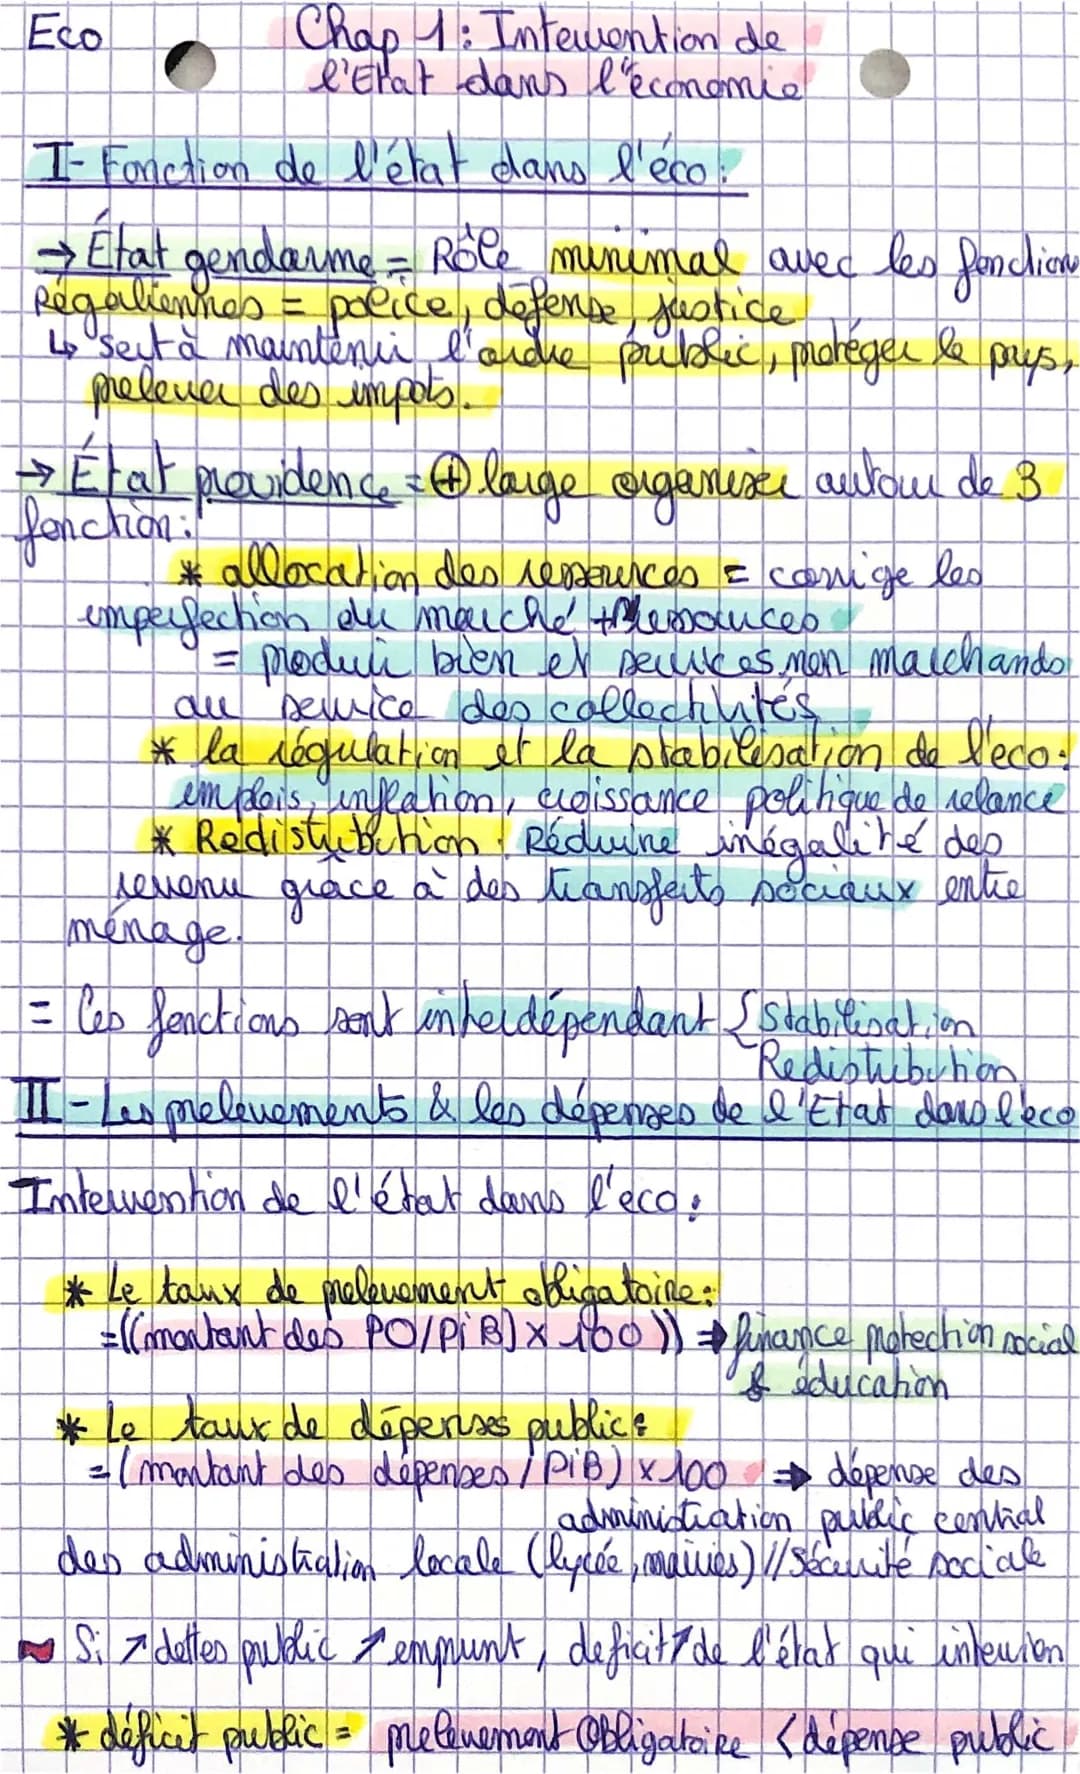 Eco
Chap 1 : Intervention de
l'Etat dans l'économie
I- Fonction de l'état dans l'éco :
→ État gendarme = Rôle minimal avec les fonction
Régaliennes = police, défense, justice
↳ sert à maintenir l'ordre public, protéger le pays,
prelever des impots.
→ État providence = ⊕ large organiser autour de 3
fonction :
* allocation des ressources = corrige les
imperfection du marché + ressources
= produir bien et services non marchands
au service des collectivités
* la régulation et la stabilisation de l'eco :
emplois, inflation, croissance politique de relance
* Redistribution : Réduire inégalité des
revenu grâce à des transferts sociaux entre
ménage.
= Ces fonctions sont interdépendant { Stabilisation
Redistribution
II - Les prelevements & les dépenses de l'Etat dans l'eco
Intervention de l'état dans l'éco :
* Le taux de prelevement obligatoire :
= ((montant des PO/PiB) x 100 )) ⇒ finance protection social
& éducation
* Le taux de dépenses public :
= ( montant des dépenses / PiB) x 100 ⇒ dépense des
administration public central
des administration locale (lycée, mairies) // Sécurité sociale
~ Si ↗ dettes public ↗ emprunt, deficit ↗ de l'état qui intervien
* déficit public = prelevement Obligatoire < dépense public